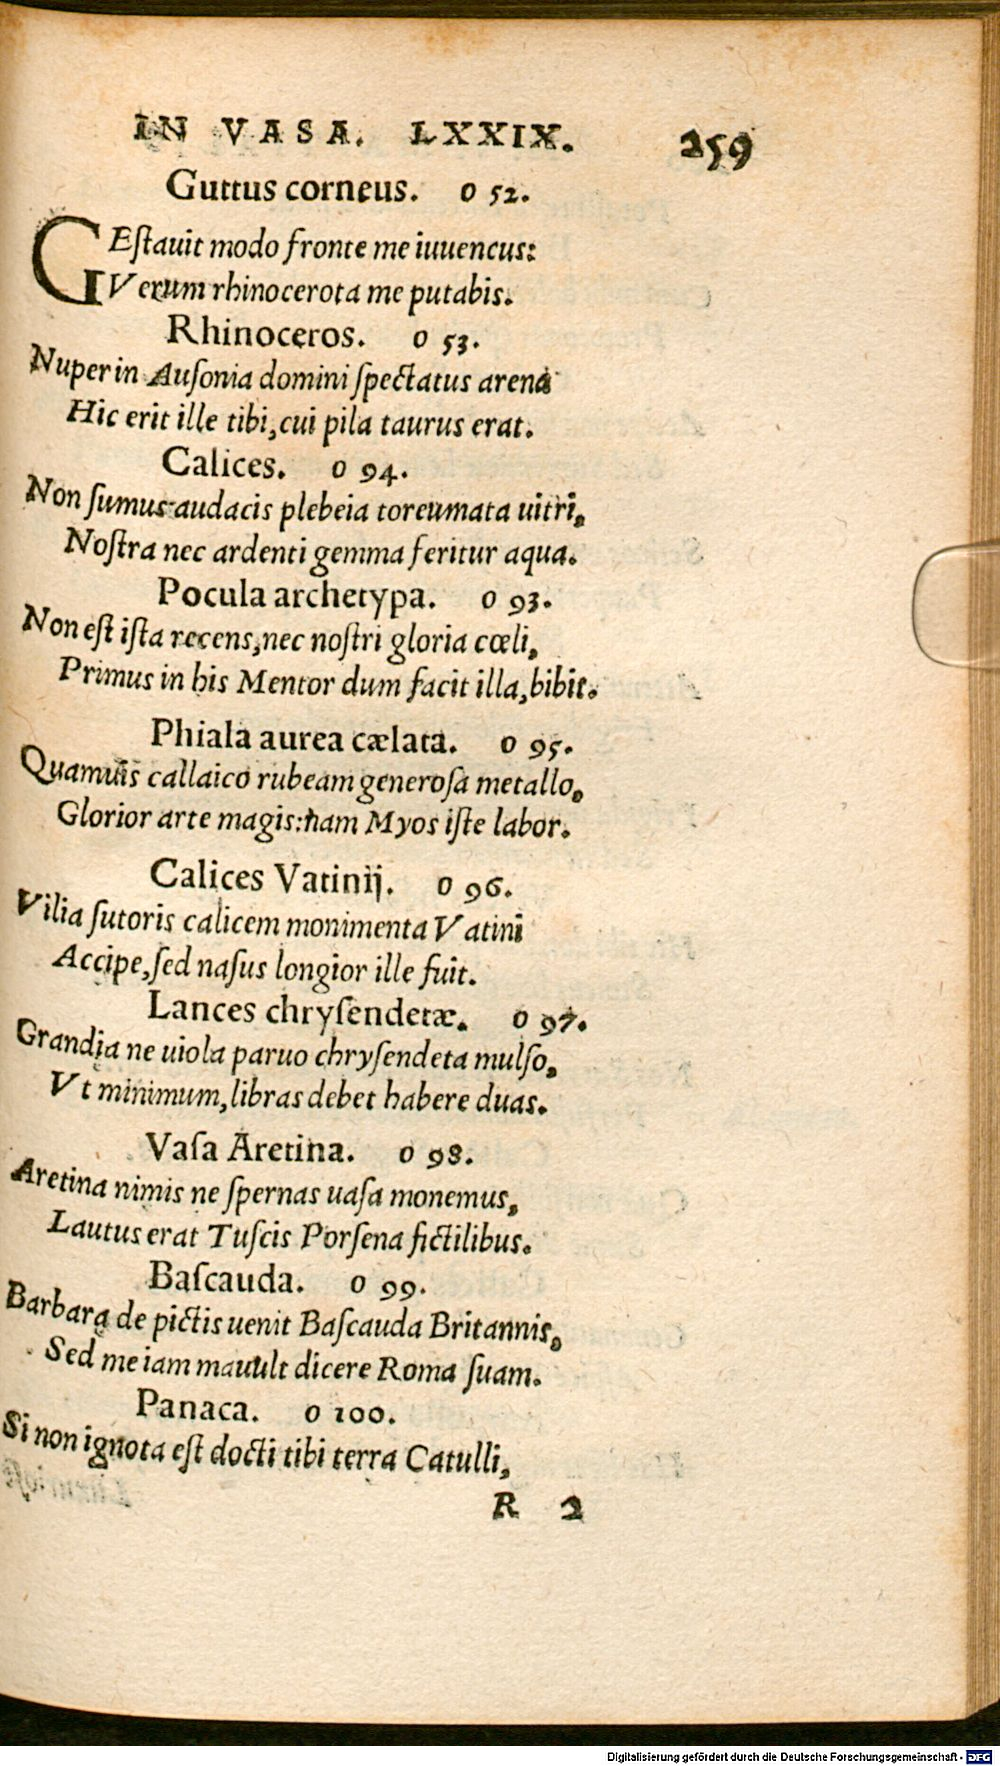 IN VASA. LXXIX. 259
Guttus corneus. o 52.
GEſtauit modo fronte me iuuencus:
Verum rhinocerota me putabis.
Rhinoceros. o 53.
Nuper in Auſonia domini ſpectatus arena
Hic erit ille tibi, cui pila taurus erat.
Calices. o 94.
Non ſumus audacis plebeia toreumata uitri,
Noſtra nec ardenti gemma feritur aqua.
Pocula archetypa. o 93.
Non eſt iſta recens, nec noſtri gloria cœli,
Primus in his Mentor dum facit illa, bibit.
Phiala aurea cælata. o 95.
Quamuis callaico rubeam generoſa metallo,
Glorior arte magis: nam Myos iſte labor.
Calices Vatinij. o 96.
Vilia ſutoris calicem monimenta Vatini
Accipe, ſed naſus longior ille fuit.
Lances chryſendetæ. o 97.
Grandia ne uiola paruo chryſendeta mulſo,
Vt minimum, libras debet habere duas.
Vaſa Aretina. o 98.
Aretina nimis ne ſpernas uaſa monemus,
Lautus erat Tuſcis Porſena fictilibus.
Baſcauda. o 99.
Barbara de pictis uenit Baſcauda Britannis,
Sed me iam mauult dicere Roma ſuam.
Panaca. o 100.
Si non ignota eſt docti tibi terra Catulli,
R 2
Digitalisierung gefördert durch die Deutsche Forschungsgemeinschaft - DFG